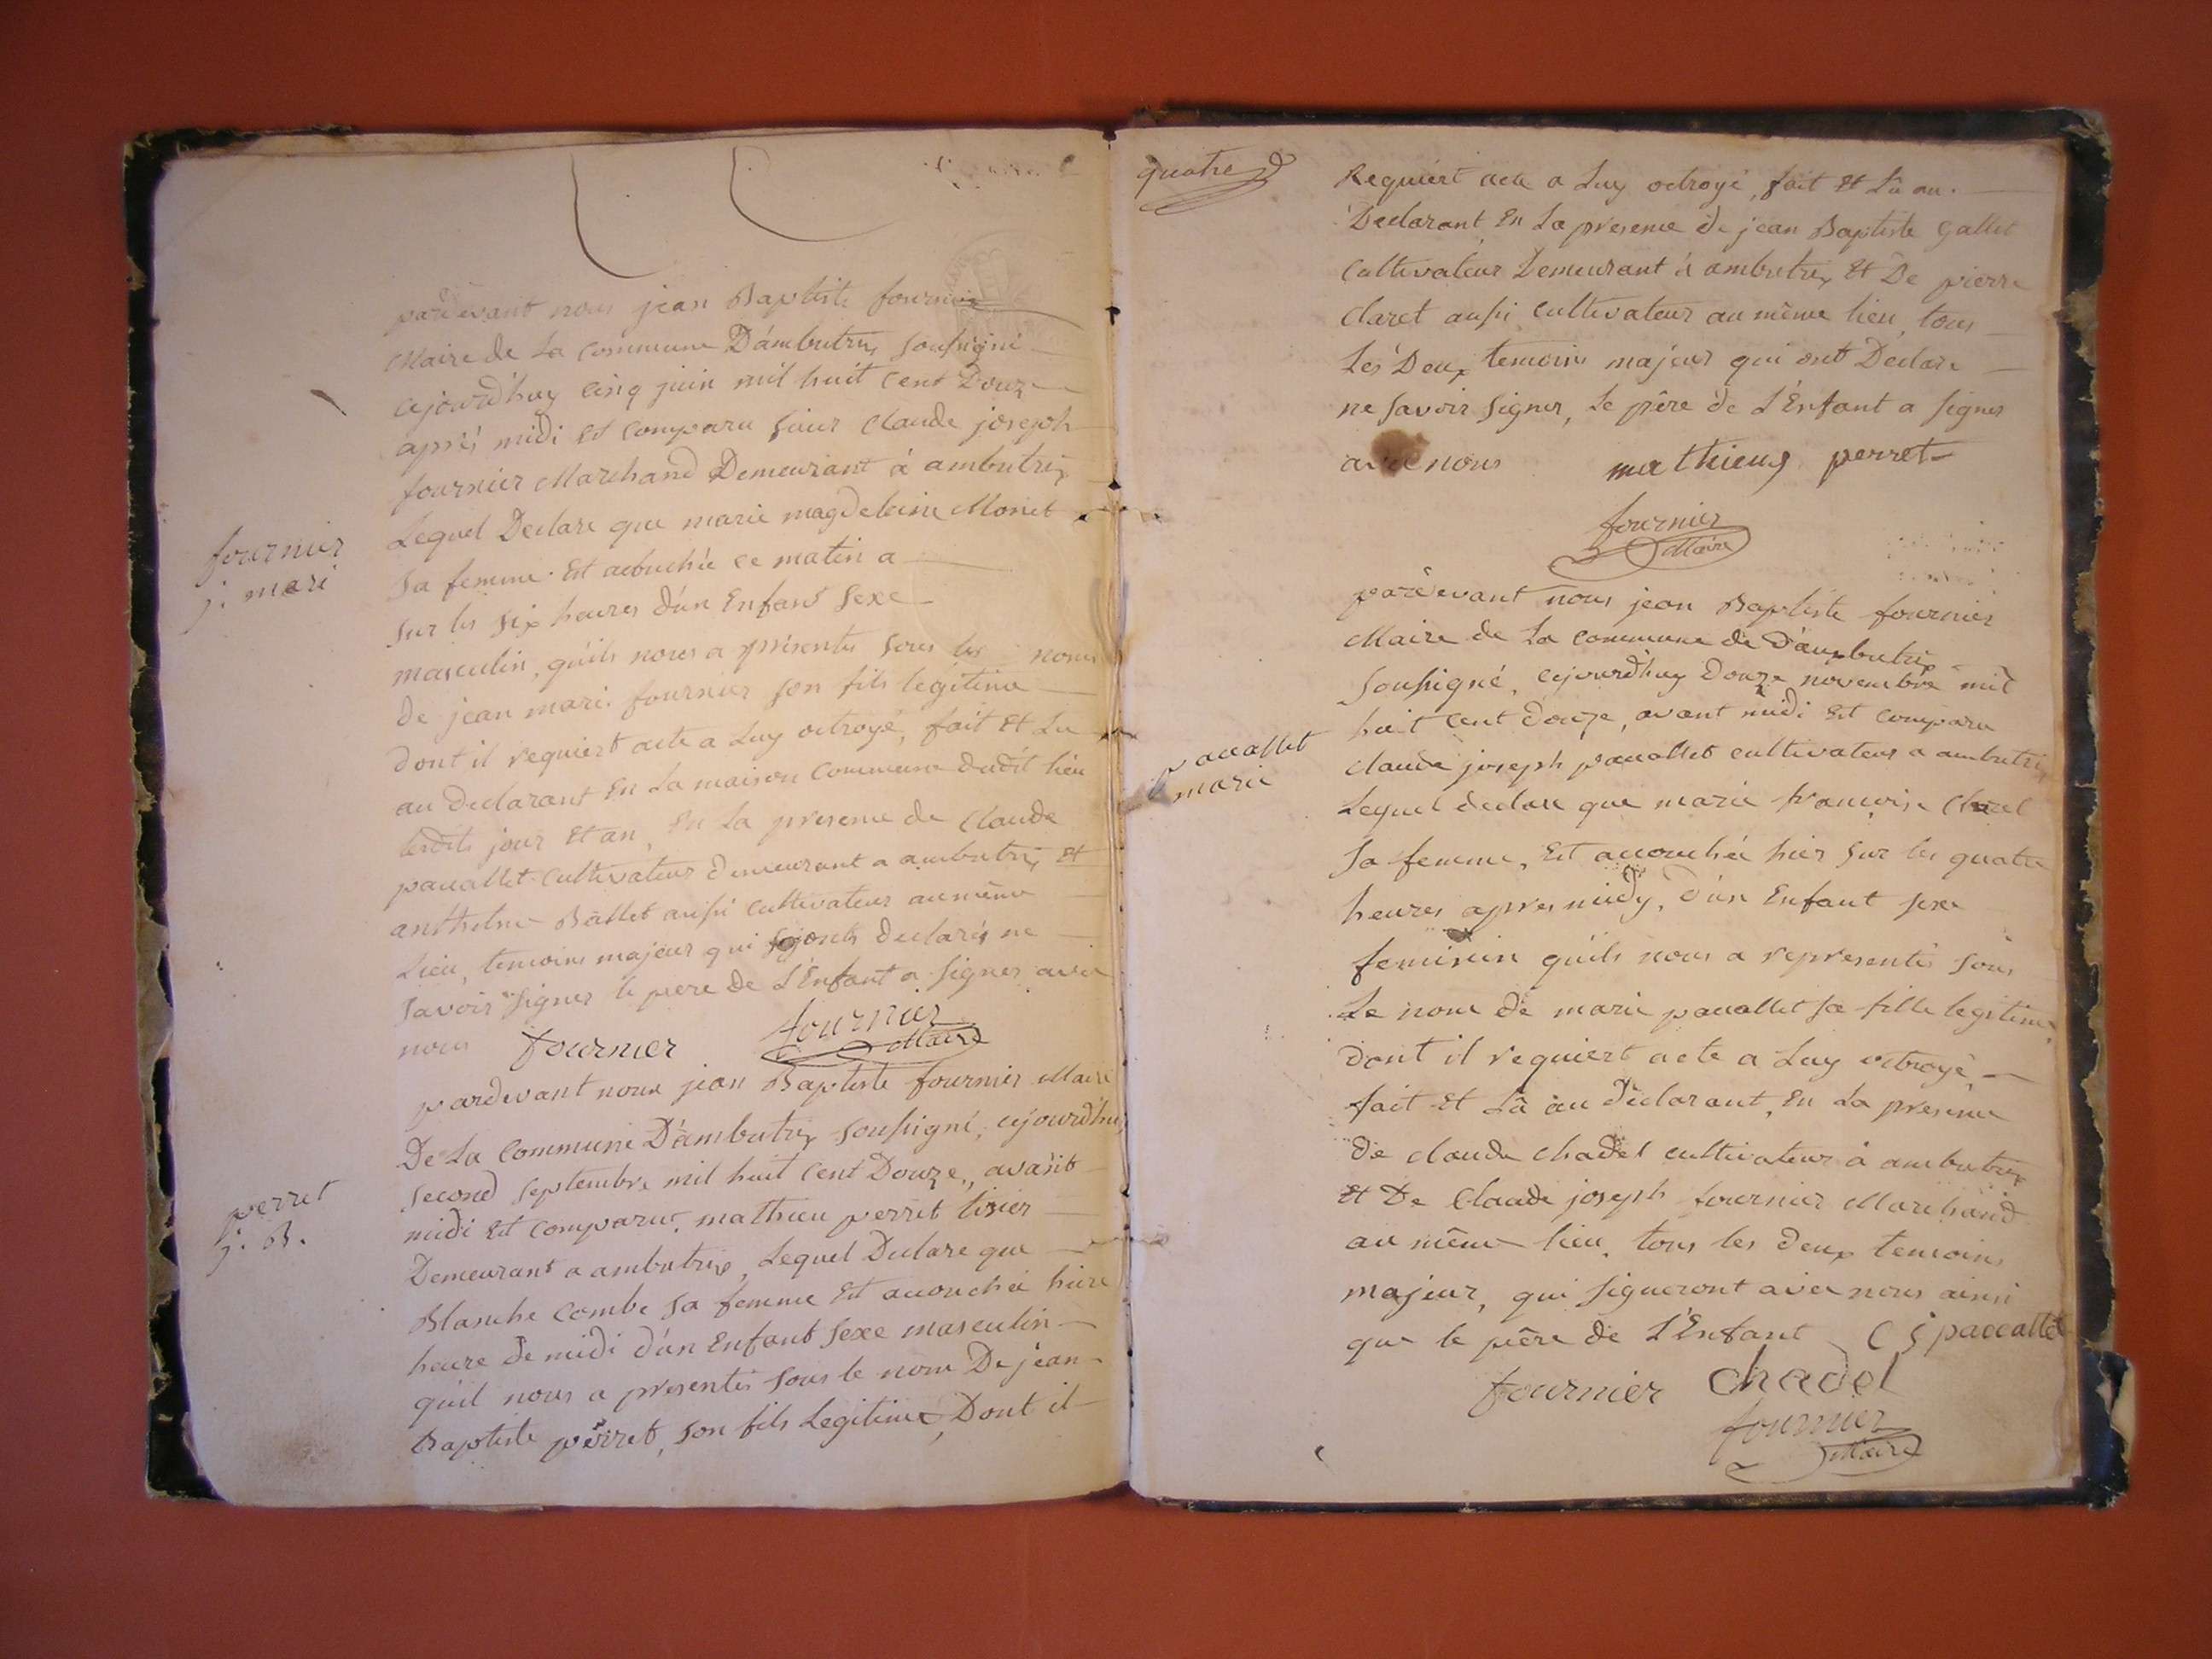 fournier
j. mari
pardevant nous jean Baptiste fournier
Maire de La Commune D'ambutrix soussigné
cejourd'huy cinq juin mil huit Cent Douze
après midi Est Comparu sieur Claude joseph
fournier Marchand Demeurant à ambutrix
Lequel Declare que marie magdeleine Monet
sa femme Est acbuchée ce matin a
sur les six heures d'un Enfant sexe
masculin, qu'ils nous a présentés sous les noms
de jean mari fournier son fils légitime
dont il requiert acte a Luy octroyé, fait Et Lu
au declarant En La maison Commune dudit lieu
lesdits jour Et an, En La presence de Claude
pauallet Cultivateur demeurant a ambutrix Et
anthelme Ballet aussi Cultivateur au même
Lieu, temoins majeur qui ont declarés ne
savoir signer le pere de L'Enfant a signer avec
nous fournier fournier Maire
perret
j. B.
pardevant nous jean Baptiste fournier Maire
De La Commune D'ambutrix soussigné, cejourd'huy
second septembre mil huit Cent Douze, avant
midi Est Comparut mathieu perret tisier
Demeurant a ambutrix, Lequel Declare que
Blanche Combe sa femme Est accouchée hiere
heure de midi d'un Enfant sexe masculin
qu'il nous a presentés sous le nom De jean
Baptiste perret, son fils Legitime, Dont il
quatre
Requiert acte a Luy octroyé, fait Et Lû au
Declarant En La presence de jean Baptiste gallet
Cultivateur Demeurant à ambutrix Et De pierre
Claret aussi Cultivateur au même lieu, tous
Les Deux temoins majeur qui ont Declare
ne savoir signer, Le père de L'Enfant a signer
avec nous mathieus perret
fournier
Maire
pauallet
marie
pardevant nous jean Baptiste fournier
Maire de La Commune de D'ambutrix
soussigné, cejourd'huy Douze novembre mil
huit Cent douze, avant midi Est comparu
claude joseph pauallet cultivateur a ambutrix
Lequel declare que marie francoise
sa femme, Est accouchée hier sur les quatre
heures apres midy, d'un Enfant sexe
feminin qu'ils nous a representés sous
Le nom de marie pauallet sa fille legitime,
dont il requiert acte a Luy octroyé,
fait Et Lû au déclarant, En La presence
de claude chadel cultivateur à ambutrix
Et De Claude joseph fournier Marchand
au même lieu, tous les deux temoins
majeur, qui signeront avec nous ainsi
que le père de L'Enfant C j pauallet
fournier chadel
fournier
Maire